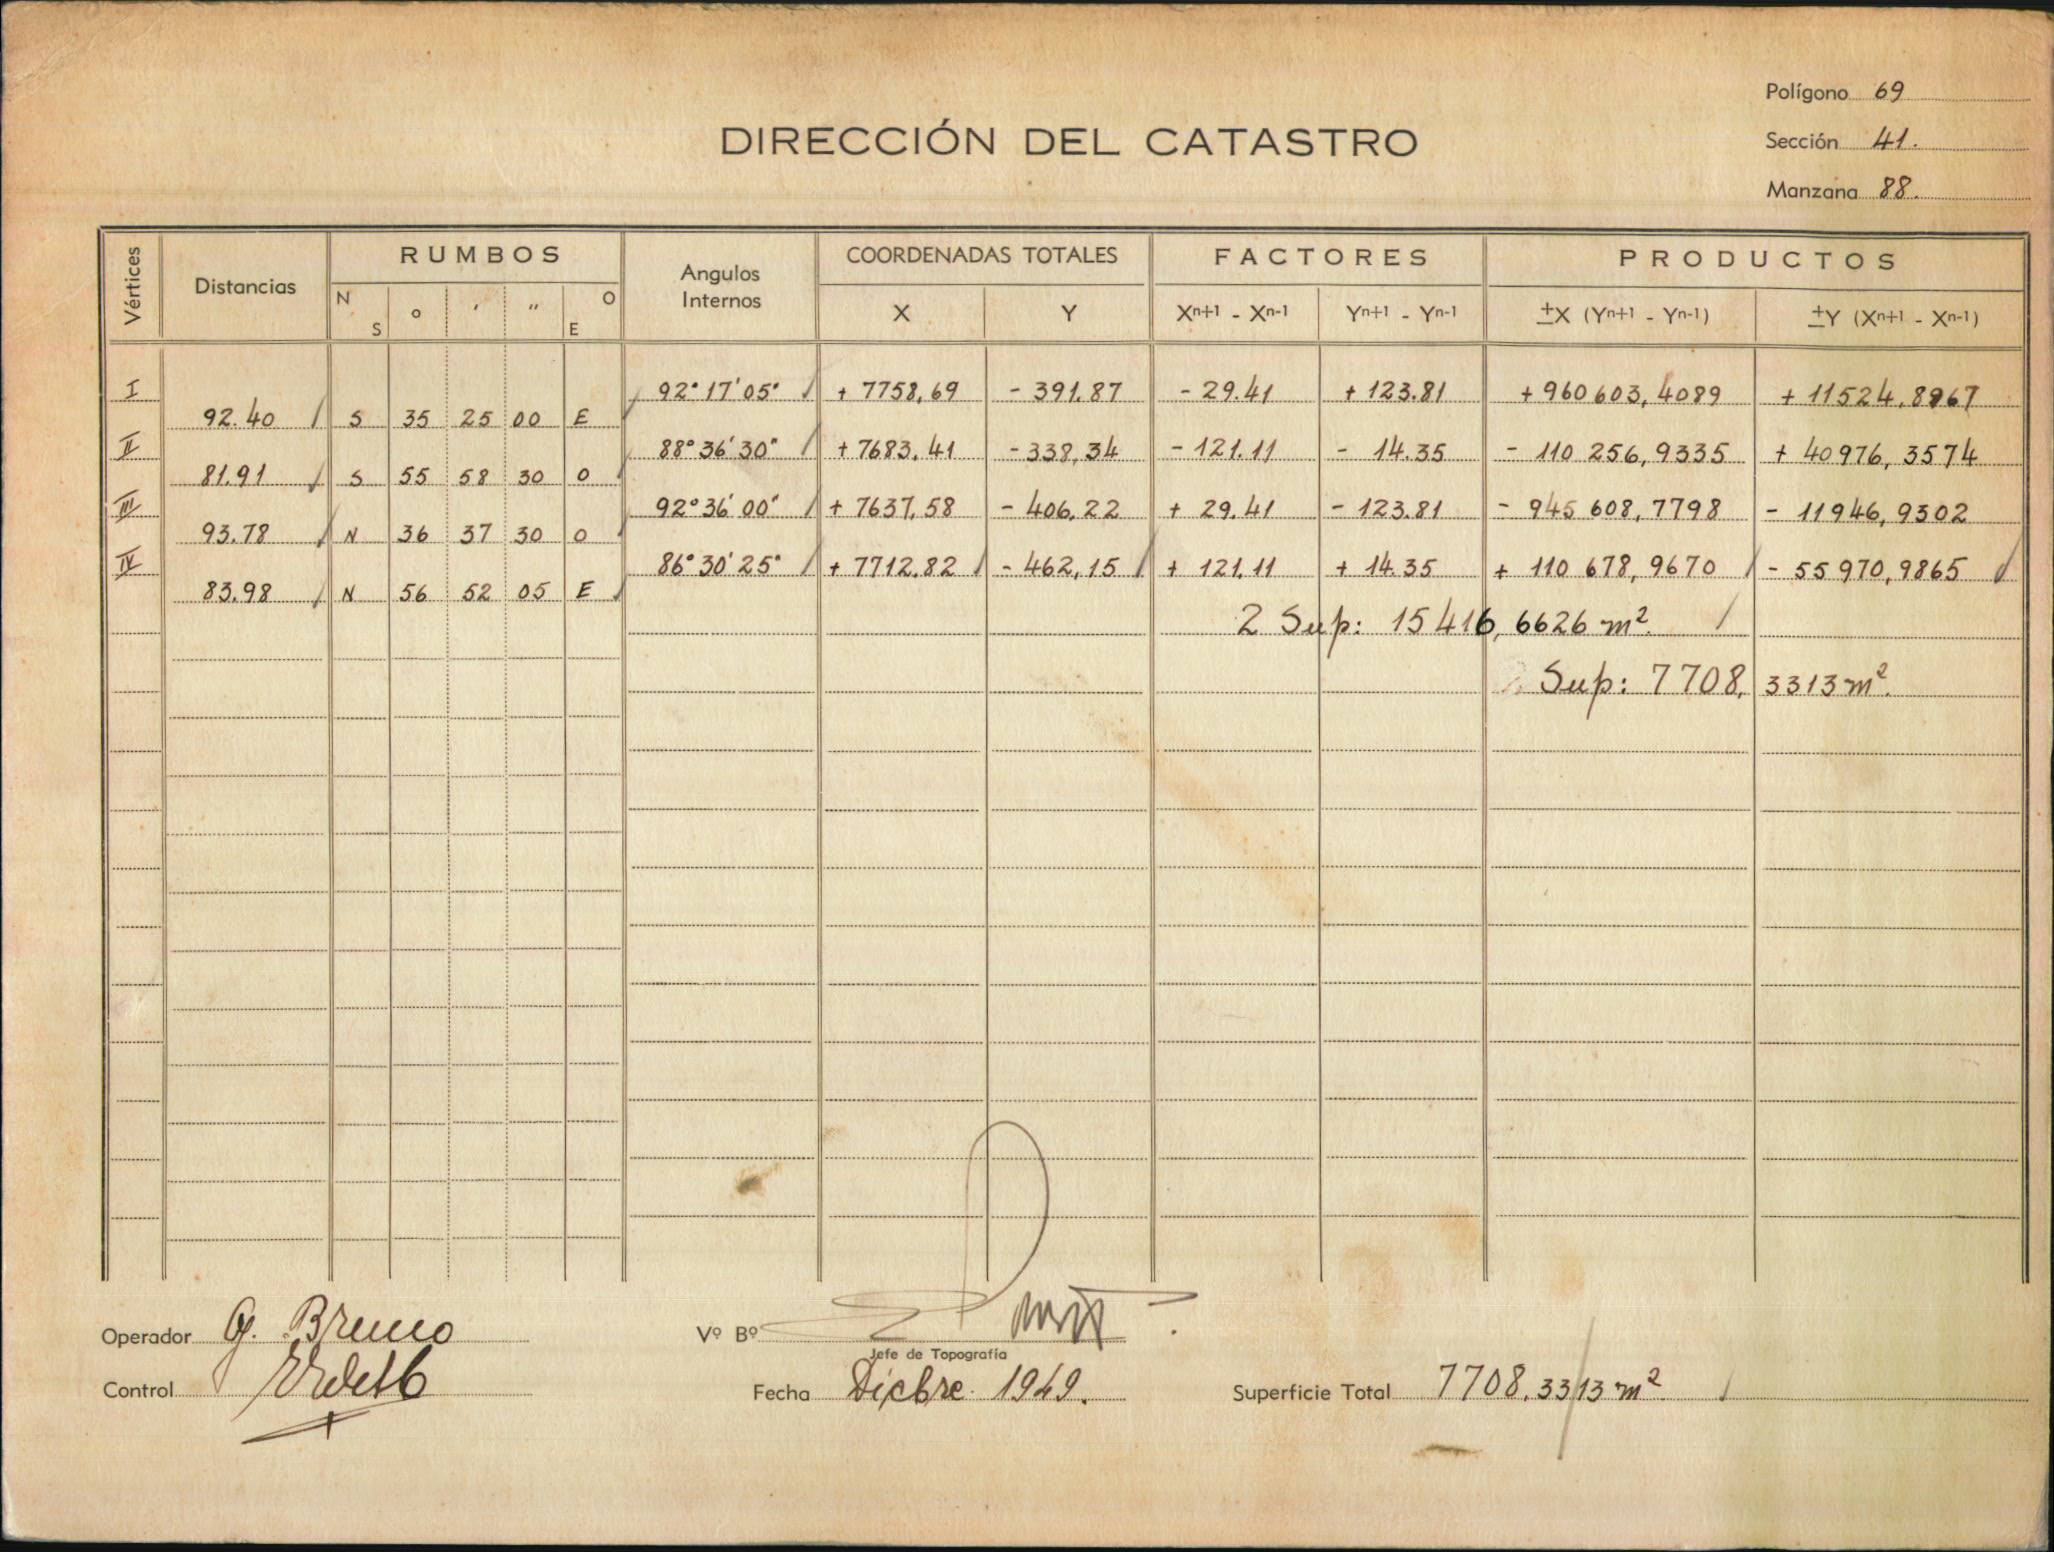 Polígono 69
DIRECCIÓN DEL CATASTRO
Sección 41.
Manzana 88.
Vértices Distancias RUMBOS Angulos Internos COORDENADAS TOTALES FACTORES PRODUCTOS
N S ° ' " O E X Y Xn+1 - Xn-1 Yn+1 - Yn-1 ±X (Yn+1 - Yn-1) ±Y (Xn+1 - Xn-1)
I 92°17'05" + 7758,69 - 391.87 - 29.41 + 123.81 + 960603,4089 + 11524,8967
92.40 S 35 25 00 E
II 88°36'30" + 7683.41 - 338,34 - 121.11 - 14.35 - 110 256,9335 + 40976,3574
81.91 S 55 58 30 O
III 92°36'00" + 7637,58 - 406,22 + 29.41 - 123.81 - 945 608,7798 - 11946,9302
93.78 N 36 37 30 O
IV 86°30'25" + 7712.82 - 462,15 + 121,11 + 14.35 + 110 678,9670 - 55970,9865
83.98 N 56 52 05 E
2 Sup: 15416,6626 m².
Sup: 7708, 3313 m².
Operador G. Bruno
Vº Bº
Jefe de Topografía
Control
Fecha Dicbre. 1949.
Superficie Total 7708.3313 m²